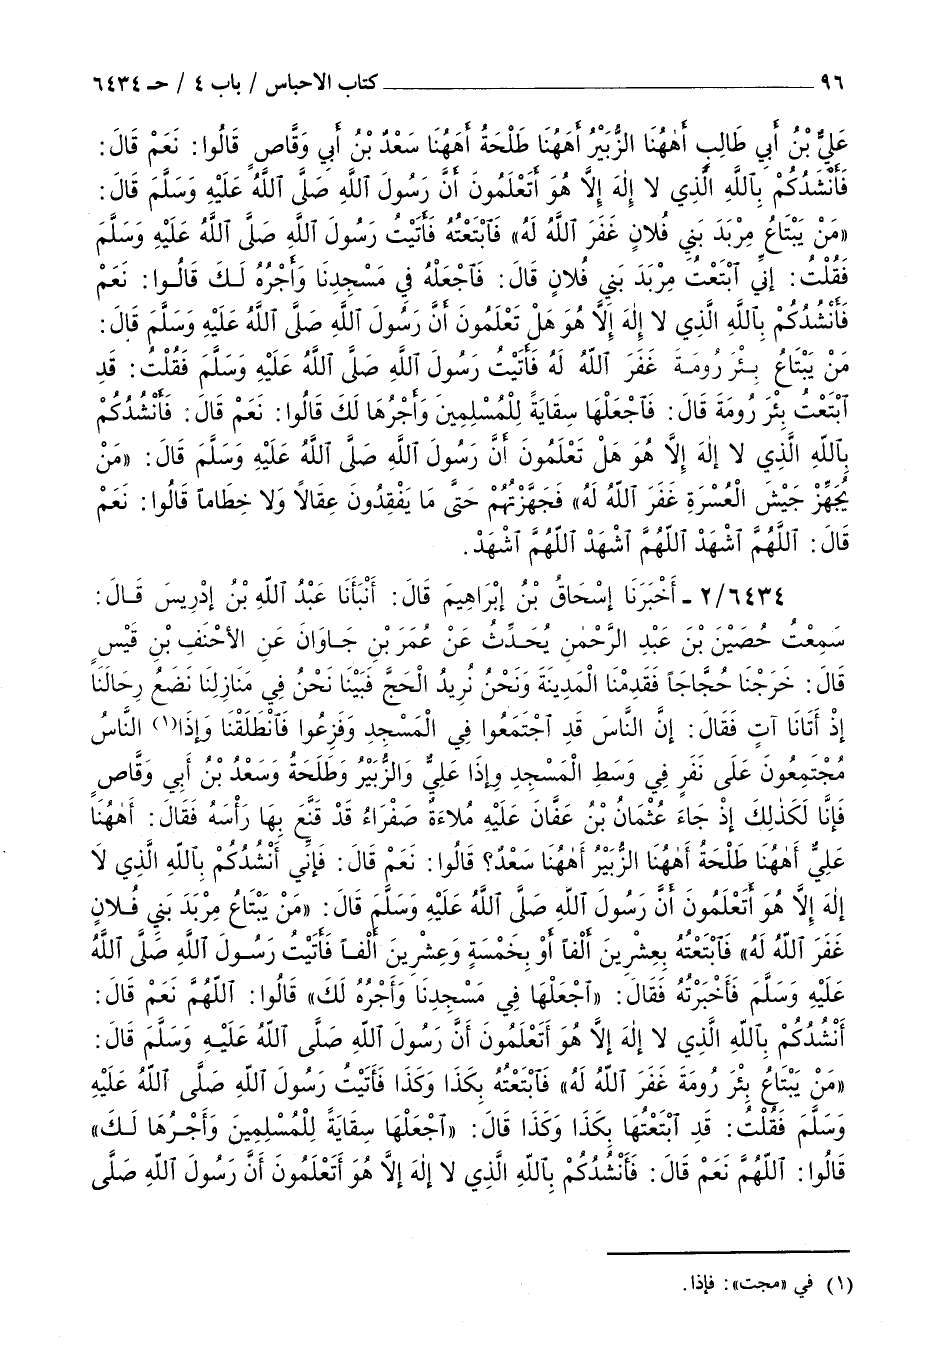 ٩٦ كتاب الاحباس / باب ٤ / حـ ٦٤٣٤
عَلِيُّ بْنُ أَبِي طَالِبٍ أَهٰهُنَا الزُّبَيْرُ أَهٰهُنَا طَلْحَةُ أَهَهُنَا سَعْدُ بْنُ أَبِي وَقَّاصٍ قَالُوا: نَعَمْ قَالَ:
فَأَنْشُدُكُمْ بِٱللَّهِ الَّذِي لا إِلٰهَ إِلَّا هُوَ أَتَعْلَمُونَ أَنَّ رَسُولَ ٱللهِ صَلَّى ٱللَّهُ عَلَيْهِ وَسَلَّمَ قَالَ:
«مَنْ يَبْتَاعُ مِرْبَدَ بَنِي فُلانٍ غَفَرَ ٱللَّهُ لَهُ» فَٱبْتَعْتُهُ فَأَتَيْتُ رَسُولَ ٱللهِ صَلَّى ٱللَّهُ عَلَيْهِ وَسَلَّمَ
فَقُلْتُ: إِنِّي ٱبْتَعْتُ مِرْبَدَ بَنِي فُلانٍ قَالَ: فَٱجْعَلْهُ فِي مَسْجِدِنَا وَأَجْرُهُ لَـكَ قَالُـوا: نَعَمْ
فَأَنْشُدُكُمْ بِٱللَّهِ الَّذِي لا إِلٰهَ إِلَّا هُوَ هَلْ تَعْلَمُونَ أَنَّ رَسُولَ ٱللهِ صَلَّى ٱللَّهُ عَلَيْهِ وَسَلَّمَ قَالَ:
مَنْ يَبْتَاعُ بِـئْرَ رُومَـةَ غَفَرَ ٱللَّهُ لَهُ فَأَتَيْتُ رَسُولَ ٱللهِ صَلَّى ٱللَّهُ عَلَيْهِ وَسَلَّمَ فَقُلْتُ: قَدِ
ٱبْتَعْتُ بِئْرَ رُومَةَ قَالَ: فَٱجْعَلْهَا سِقَايَةً لِلْمُسْلِمِينَ وَأَجْرُهَا لَكَ قَالُوا: نَعَمْ قَالَ: فَأَنْشُدُكُمْ
بِٱللَّهِ الَّذِي لا إِلٰهَ إِلَّا هُوَ هَلْ تَعْلَمُونَ أَنَّ رَسُولَ ٱللهِ صَلَّى ٱللَّهُ عَلَيْهِ وَسَلَّمَ قَالَ: «مَنْ
يُجَهِّزْ جَيْشَ الْعُسْرَةِ غَفَرَ ٱللَّهُ لَهُ» فَجَهَّزْتُهُمْ حَتَّى مَا يَفْقِدُونَ عِقَالًا وَلا خِطَاماً قَالُوا: نَعَمْ
قَالَ: ٱللَّهُمَّ ٱشْهَدْ ٱللَّهُمَّ ٱشْهَدْ ٱللَّهُمَّ ٱشْهَدْ.
٢/٦٤٣٤ ـ أَخْبَرَنَا إِسْحَاقُ بْنُ إِبْرَاهِيمَ قَالَ: أَنْبَأَنَا عَبْدُ ٱللَّهِ بْنُ إِدْرِيسَ قَـالَ:
سَمِعْتُ حُصَيْنَ بْنَ عَبْدِ الرَّحْمٰنِ يُحَـدِّثُ عَنْ عُمَرَ بْنِ جَـاوَانَ عَنِ الأَحْنَفِ بْنِ قَيْسٍ
قَالَ: خَرَجْنَا حُجَّاجَاً فَقَدِمْنَا الْمَدِينَةَ وَنَحْنُ نُرِيدُ الْحَجَّ فَبَيْنَا نَحْنُ فِي مَنَازِلِنَا نَضَعُ رِحَالَنَا
إِذْ أَتَانَا آتٍ فَقَالَ: إِنَّ النَّاسَ قَدِ ٱجْتَمَعُوا فِي الْمَسْجِدِ وَفَزِعُوا فَٱنْطَلَقْنَا وَإِذَا(١) النَّاسُ
مُجْتَمِعُونَ عَلَى نَفَرٍ فِي وَسَطِ الْمَسْجِدِ وَإِذَا عَلِيٌّ وَالزُّبَيْرُ وَطَلْحَةُ وَسَعْدُ بْنُ أَبِي وَقَّاصٍ
فَإِنَّا لَكَذٰلِكَ إِذْ جَاءَ عُثْمَانُ بْنُ عَفَّانَ عَلَيْهِ مُلاءَةٌ صَفْرَاءُ قَدْ قَنَّعَ بِهَا رَأْسَهُ فَقَالَ: أَهٰهُنَا
عَلِيٌّ أَهٰهُنَا طَلْحَةُ أَهٰهُنَا الزُّبَيْرُ أَهٰهُنَا سَعْدٌ؟ قَالُوا: نَعَمْ قَالَ: فَإِنِّي أَنْشُدُكُمْ بِٱللَّهِ الَّذِي لَا
إِلٰهَ إِلَّا هُوَ أَتَعْلَمُونَ أَنَّ رَسُولَ ٱللهِ صَلَّى ٱللَّهُ عَلَيْهِ وَسَلَّمَ قَالَ: «مَنْ يَبْتَاعُ مِرْبَدَ بَنِي فُـلانٍ
غَفَرَ ٱللَّهُ لَهُ» فَٱبْتَعْتُهُ بِعِشْرِينَ أَلْفاً أَوْ بِخَمْسَةٍ وَعِشْرِينَ أَلْفـاً فَأَتَيْتُ رَسُـولَ ٱللهِ صَلَّى ٱللَّهُ
عَلَيْهِ وَسَلَّمَ فَأَخْبَرْتُهُ فَقَالَ: «ٱجْعَلْهَا فِي مَسْجِدِنَا وَأَجْرُهُ لَكَ» قَالُوا: ٱللَّهُمَّ نَعَمْ قَالَ:
أَنْشُدُكُمْ بِٱللَّهِ الَّذِي لا إِلٰهَ إِلَّا هُوَ أَتَعْلَمُونَ أَنَّ رَسُولَ ٱللهِ صَلَّى ٱللَّهُ عَلَيْـهِ وَسَلَّمَ قَالَ:
«مَنْ يَبْتَاعُ بِئْرَ رُومَةَ غَفَرَ ٱللَّهُ لَهُ» فَٱبْتَعْتُهُ بِكَذَا وَكَذَا فَأَتَيْتُ رَسُولَ ٱللهِ صَلَّى ٱللَّهُ عَلَيْهِ
وَسَلَّمَ فَقُلْتُ: قَدِ ٱبْتَعْتُهَا بِكَذَا وَكَذَا قَالَ: «ٱجْعَلْهَا سِقَايَةً لِلْمُسْلِمِينَ وَأَجْـرُهَا لَـكَ»
قَالُوا: ٱللَّهُمَّ نَعَمْ قَالَ: فَأَنْشُدُكُمْ بِٱللَّهِ الَّذِي لا إِلٰهَ إِلَّا هُوَ أَتَعْلَمُونَ أَنَّ رَسُولَ ٱللهِ صَلَّى
(١) في «مجت»: فإذا.